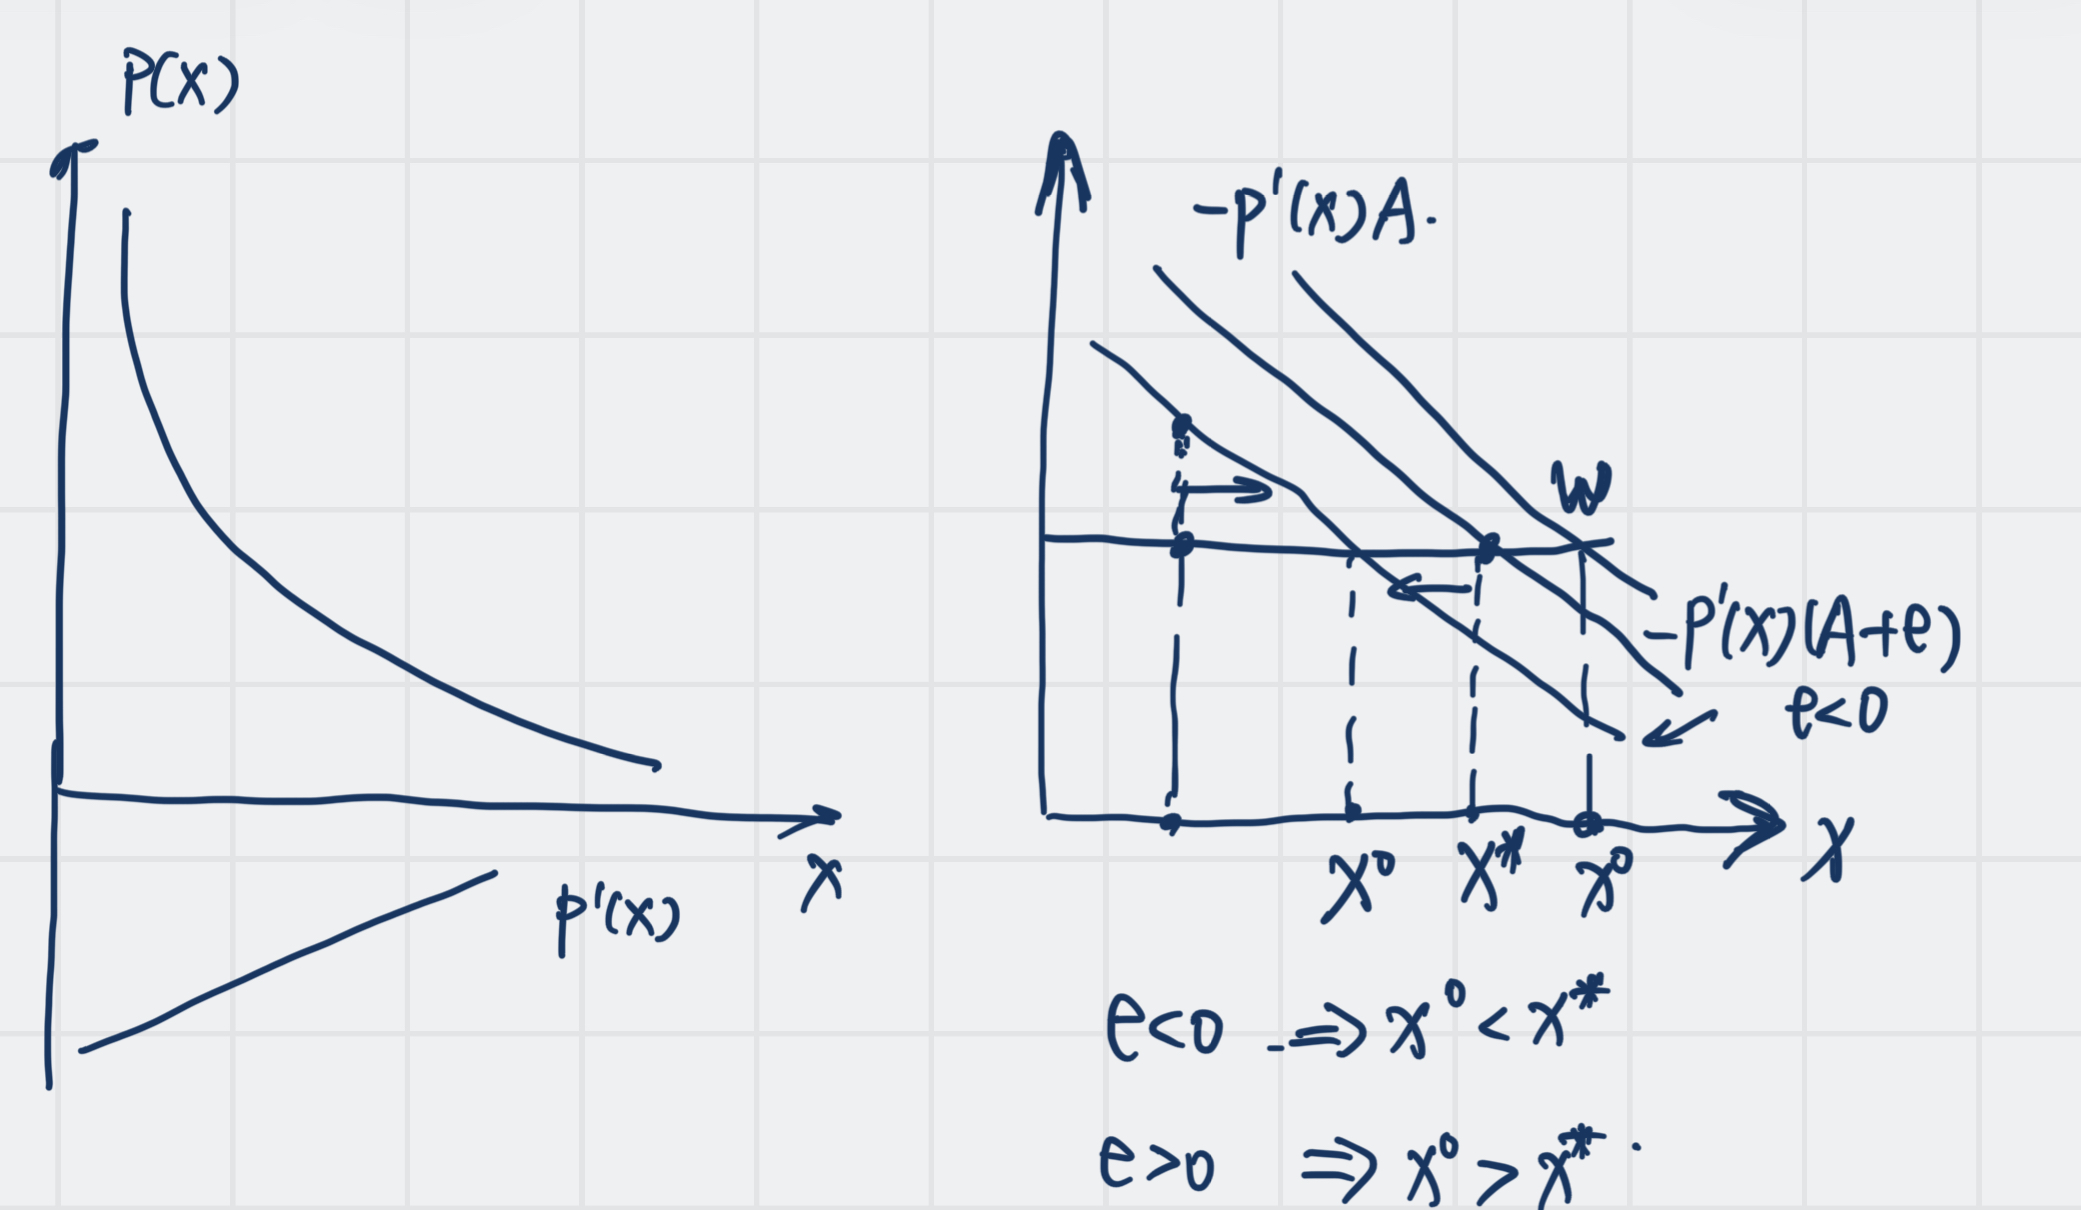 P(x)
x
p'(x)
-p'(x)A.
W
-p'(x)(A+e)
e<0
x⁰
x*
x⁰
x
e<0 ⇒ x⁰ < x*
e>0 ⇒ x⁰ > x*